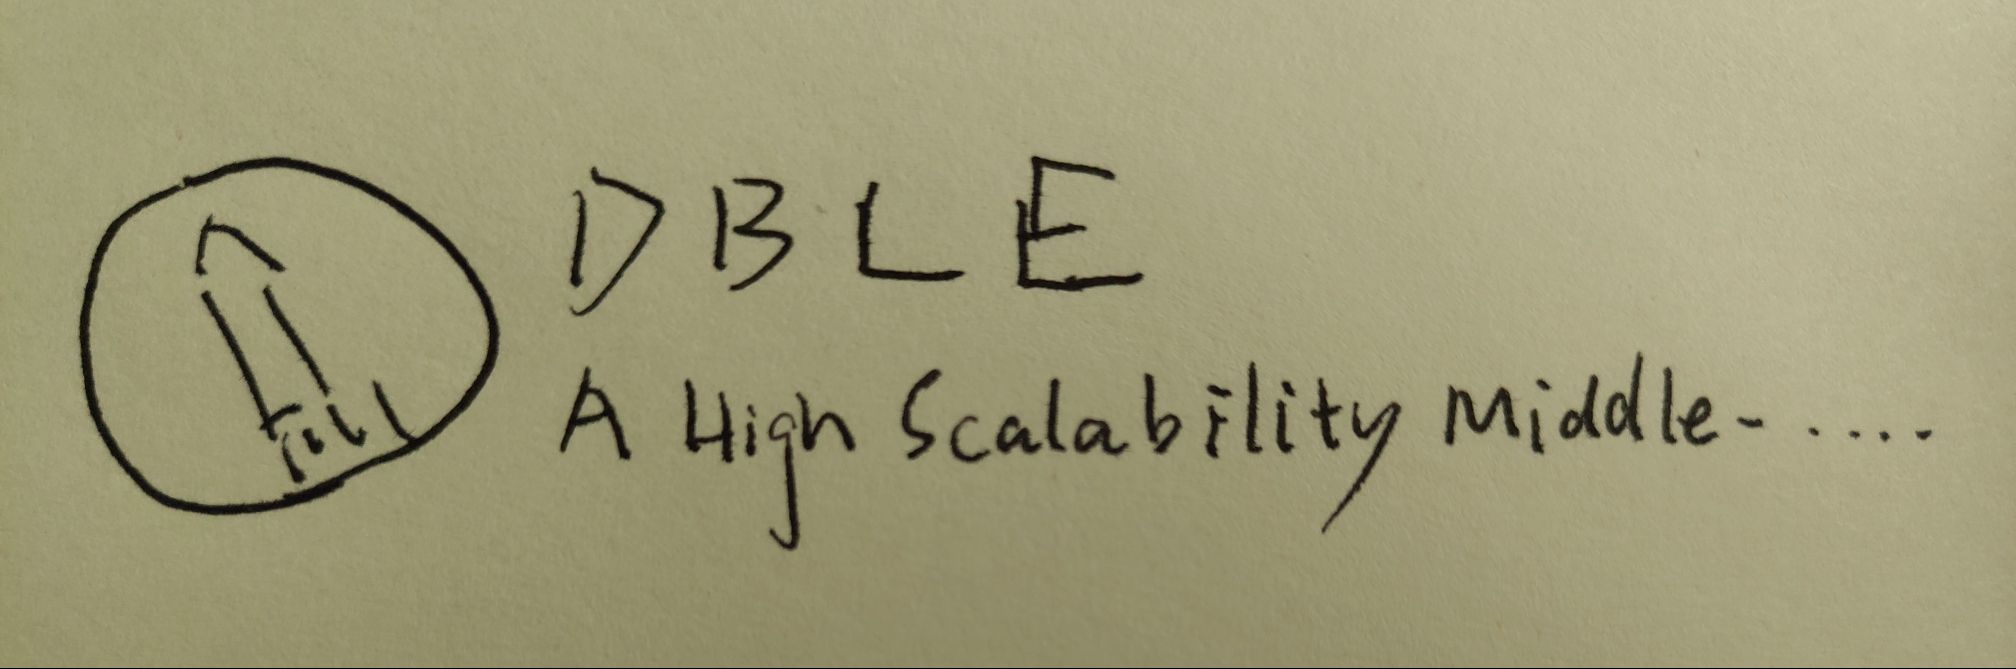 DBLE
A High Scalability Middle-.....